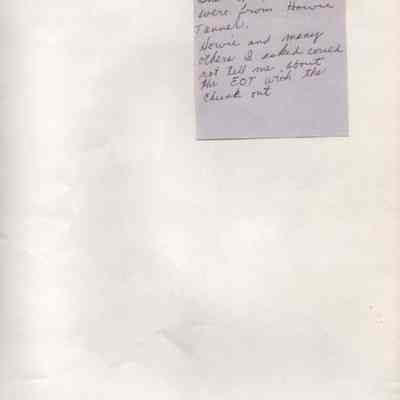 were from Howie
Tanner.
Howie and many
others I asked could
not tell me about
the EOT with the
chunk out